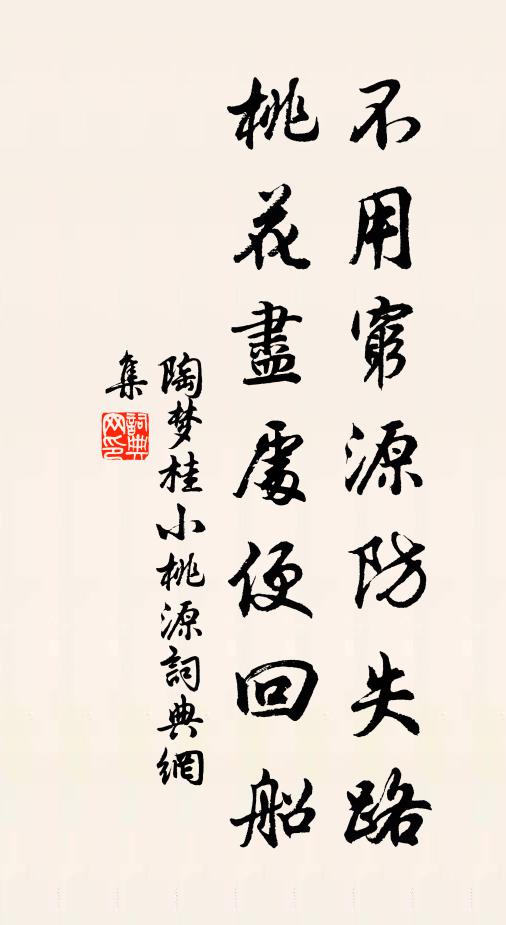 不用窮源防失路
桃花盡處便回船
陶梦桂小桃源詞典網
集
詞典网印